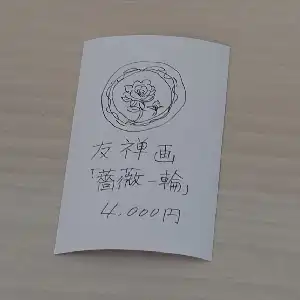 友禅画
「薔薇一輪」
4,000円